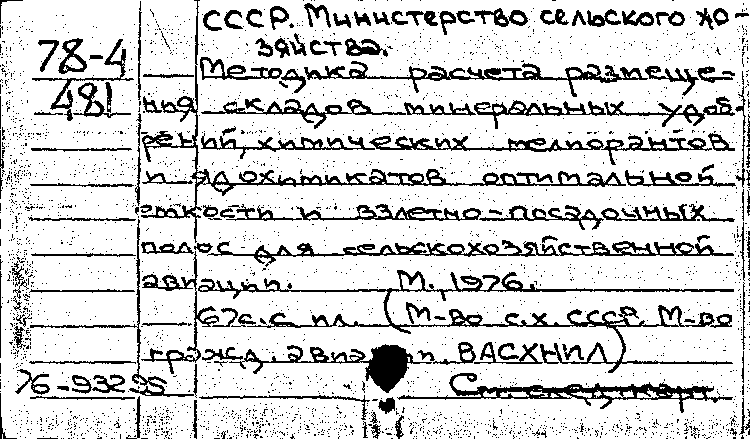 СССР. Министерство сельского хо-
зяйства.
78-4
481
Методика расчета размеще-
ния складов минеральных удоб-
рений, химических мелиорантов
и ядохимикатов оптимальной
емкости и взлетно-посадочных
полос для сельскохозяйственной
авиации. М., 1976.
67с.с ил. (М-во с.х. СССР. М-во
гражд. авиации. ВАСХНИЛ)
76-93295
См. след. карт.